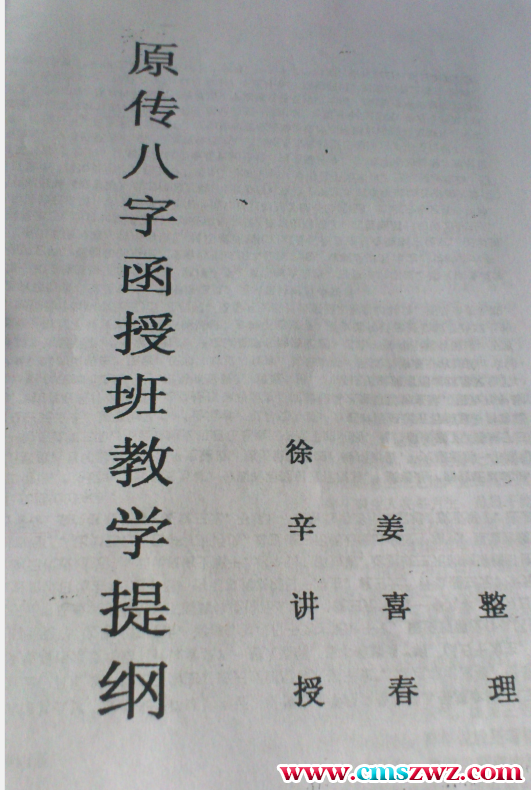 原传八字函授班教学提纲
徐辛讲授
姜喜春
整理
www.cmszwz.com